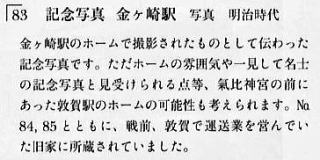 83 記念写真 金ヶ崎駅 写真 明治時代
金ヶ崎駅のホームで撮影されたものとして伝わった
記念写真です。ただホームの雰囲気や一見して名士
の記念写真と見受けられる点等、氣比神宮の前に
あった敦賀駅のホームの可能性も考えられます。No.
84, 85とともに、戦前、敦賀で運送業を営んでい
た旧家に所蔵されていました。